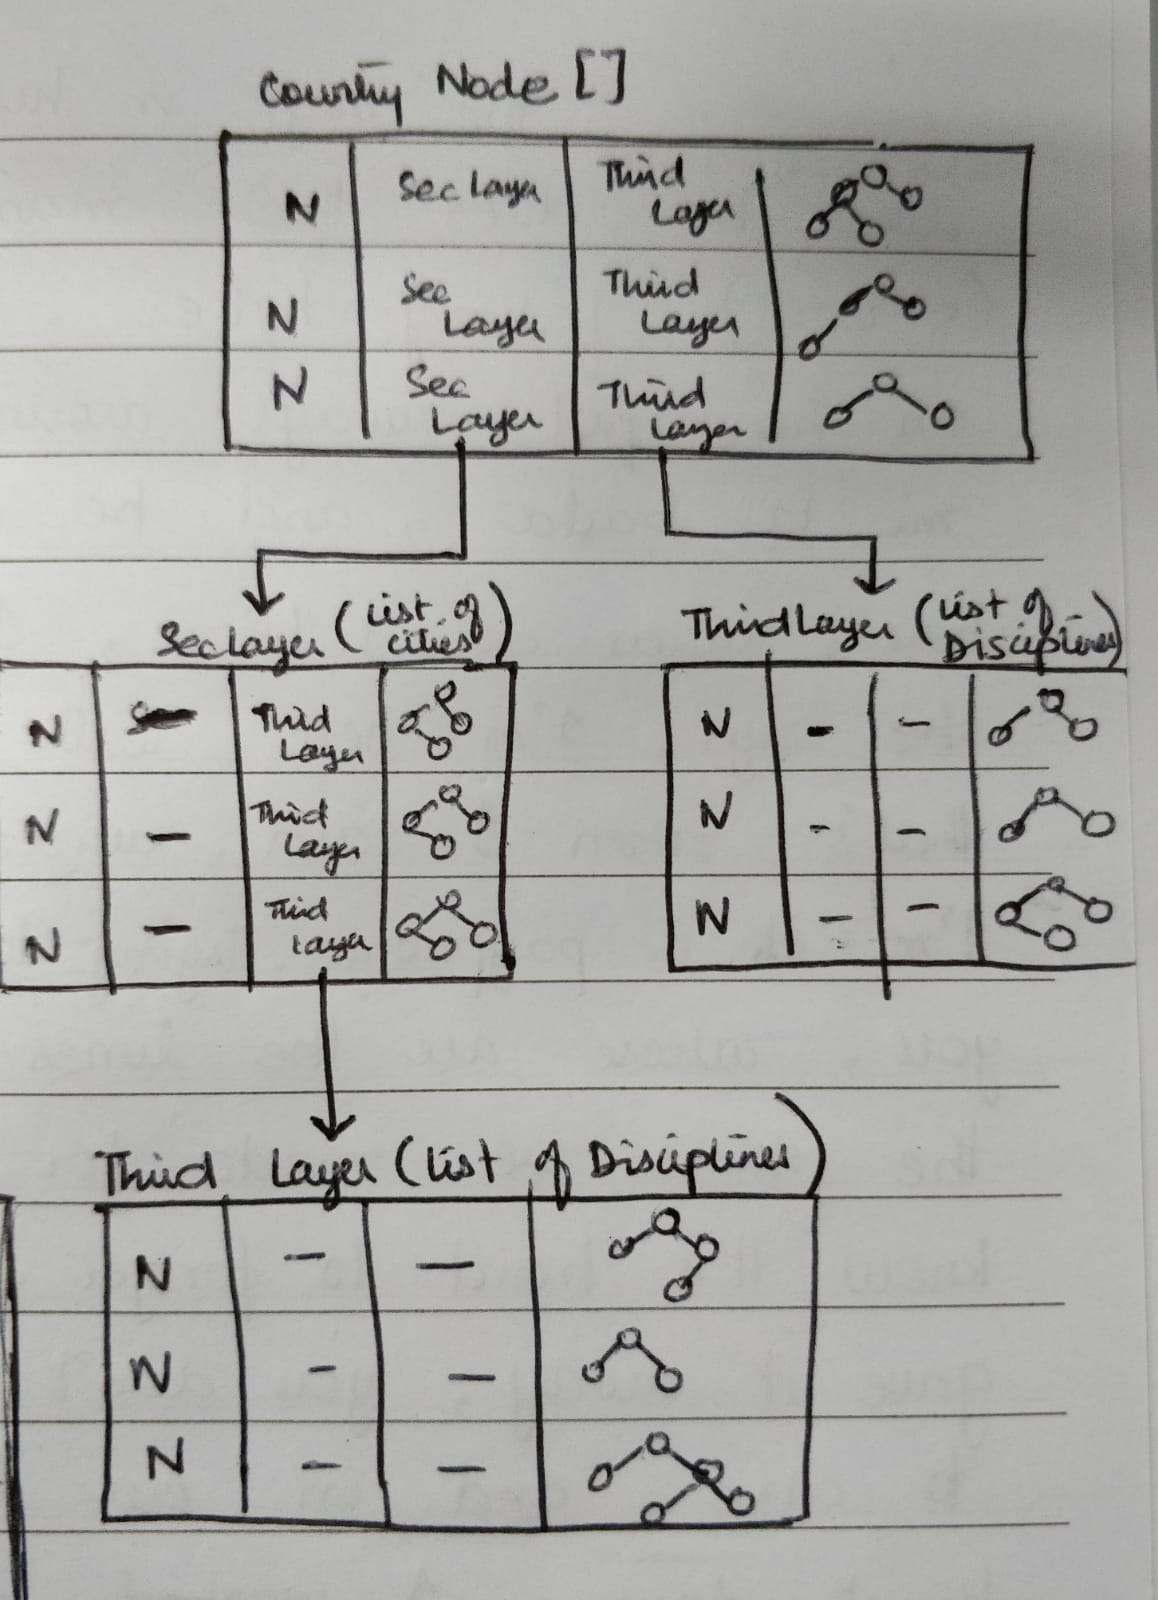 Country Node []
N Sec Layer Third Layer
N Sec Layer Third Layer
N Sec Layer Third Layer
Sec Layer (List of cities)
N - Third Layer
N - Third Layer
N - Third Layer
Third Layer (List of Disciplines)
N - -
N - -
N - -
Third Layer (List of Disciplines)
N - -
N - -
N - -